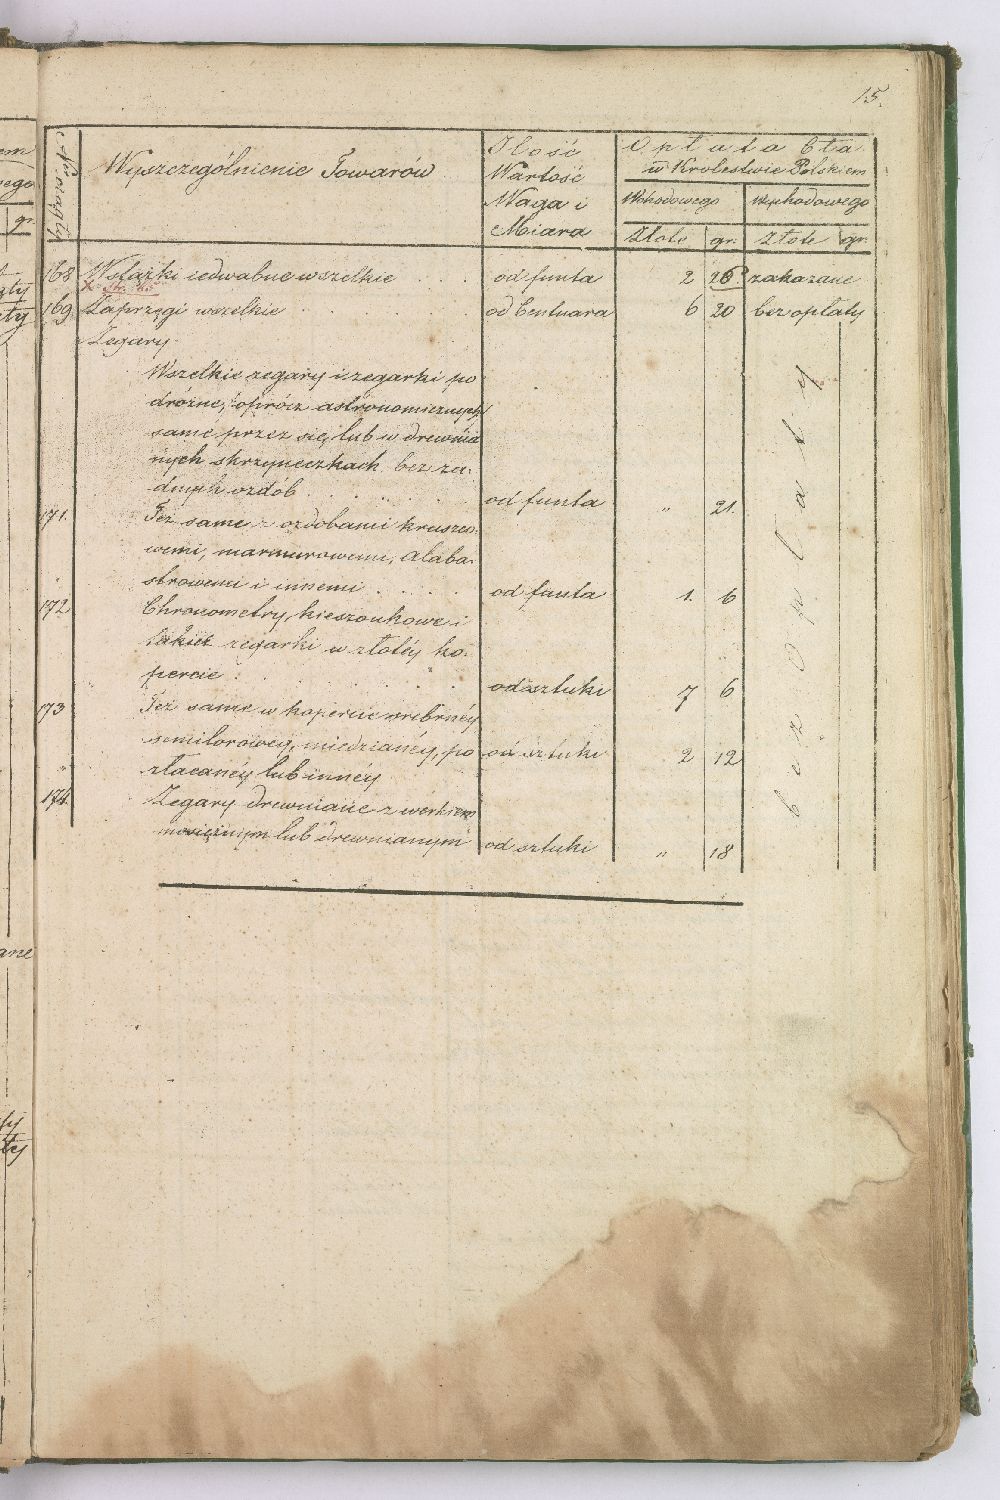 15.
Wyszczególnienie Towarów
Ilość
Wartość
Waga i
Miara
Opłata Cła
w Krolestwie Polskiem
Wchodowego Wychodowego
Złote gr. Złote gr.
168 Wstążki iedwabne wszelkie . . . od funta 2 26 zakazane
x str. 45
169 Zaprzęgi wszelkie . . . . . od Centnara 6 20 bez opłaty
Zegary.
Wszelkie zegary i zegarki po
drożne, oprócz astronomicznych
same przez się, lub w drewnia
nych skrzyneczkach bez ża-
dnych ozdób . . . . . od funta „ 21.
171. Też same z ozdobami kruszco-
wemi, marmurowemi, alaba-
strowemi i innemi . . . . . od funta 1. 6
172 Chronometry, kieszonkowe i
takież zegarki w złotéy ko-
percie . . . . . od sztuki 7 6
173 Też same w kopercie srebrnéy
semilorowéy, miedzianéy, po od sztuki 2 12
złacanéy lub innéy
174. Zegary drewniane z werkiem
mosiężnym lub drewnianym od sztuki „ 18
bez Opłaty